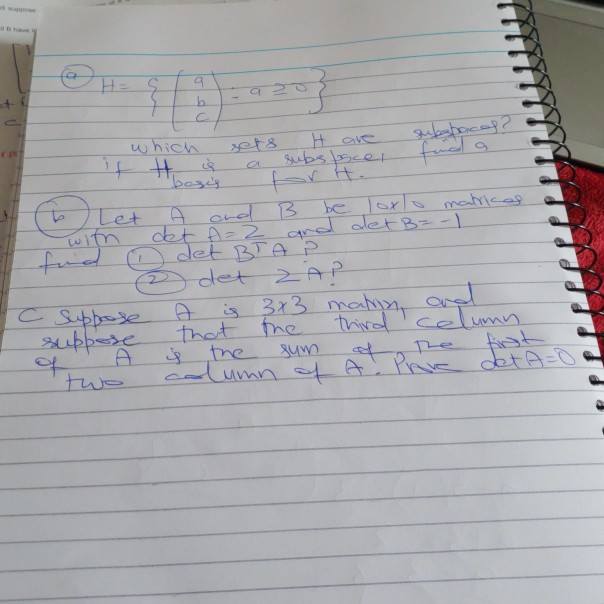 suppose
B have
a H = { ( a b c ) : a ≥ 0 }
which sets H are subspaces?
if H is a subspace, find a
basis for H.
b Let A and B be 10x10 matrices
with det A = 2 and det B = -1
find 1 det BᵀA ?
2 det 2A?
C Suppose A is 3x3 matrix, and
suppose that the third column
of A is the sum of the first
two column of A. Prove det A=0